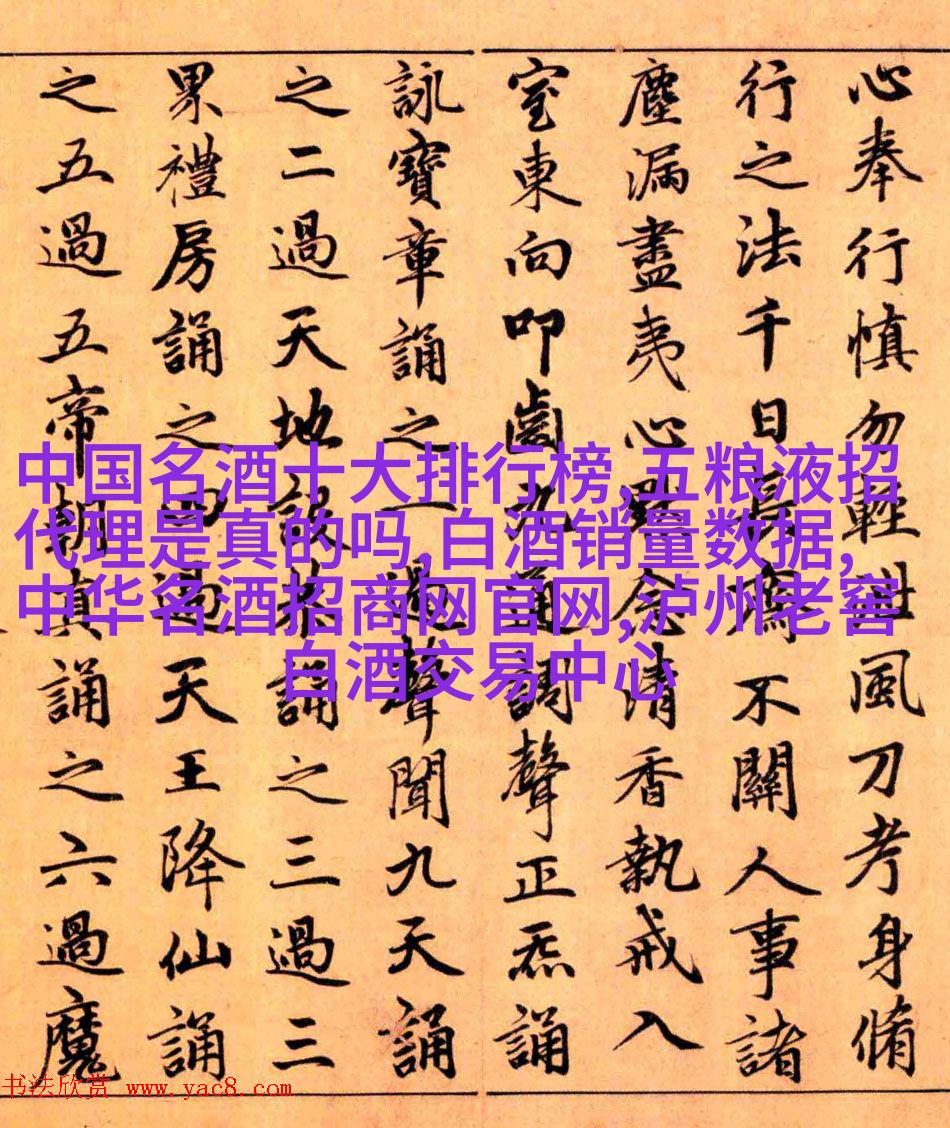 心奉行慎勿輕泄風刀考身脩
行之法千日長齋不關人事諸
塵漏盡夷心默念清香執戒入
室東向叩齒九通調聲正炁誦
詠寶章誦之一過聲聞九天誦
之二過天地設恭誦之三過三
界禮房誦之四過天王降仙誦
之五過五帝朝真誦之六過魔
中国名酒十大排行榜,五粮液招
代理是真的吗,白酒销量数据,
中华名酒招商网官网,泸州老窖
白酒交易中心
书法欣赏 www.yac8.com